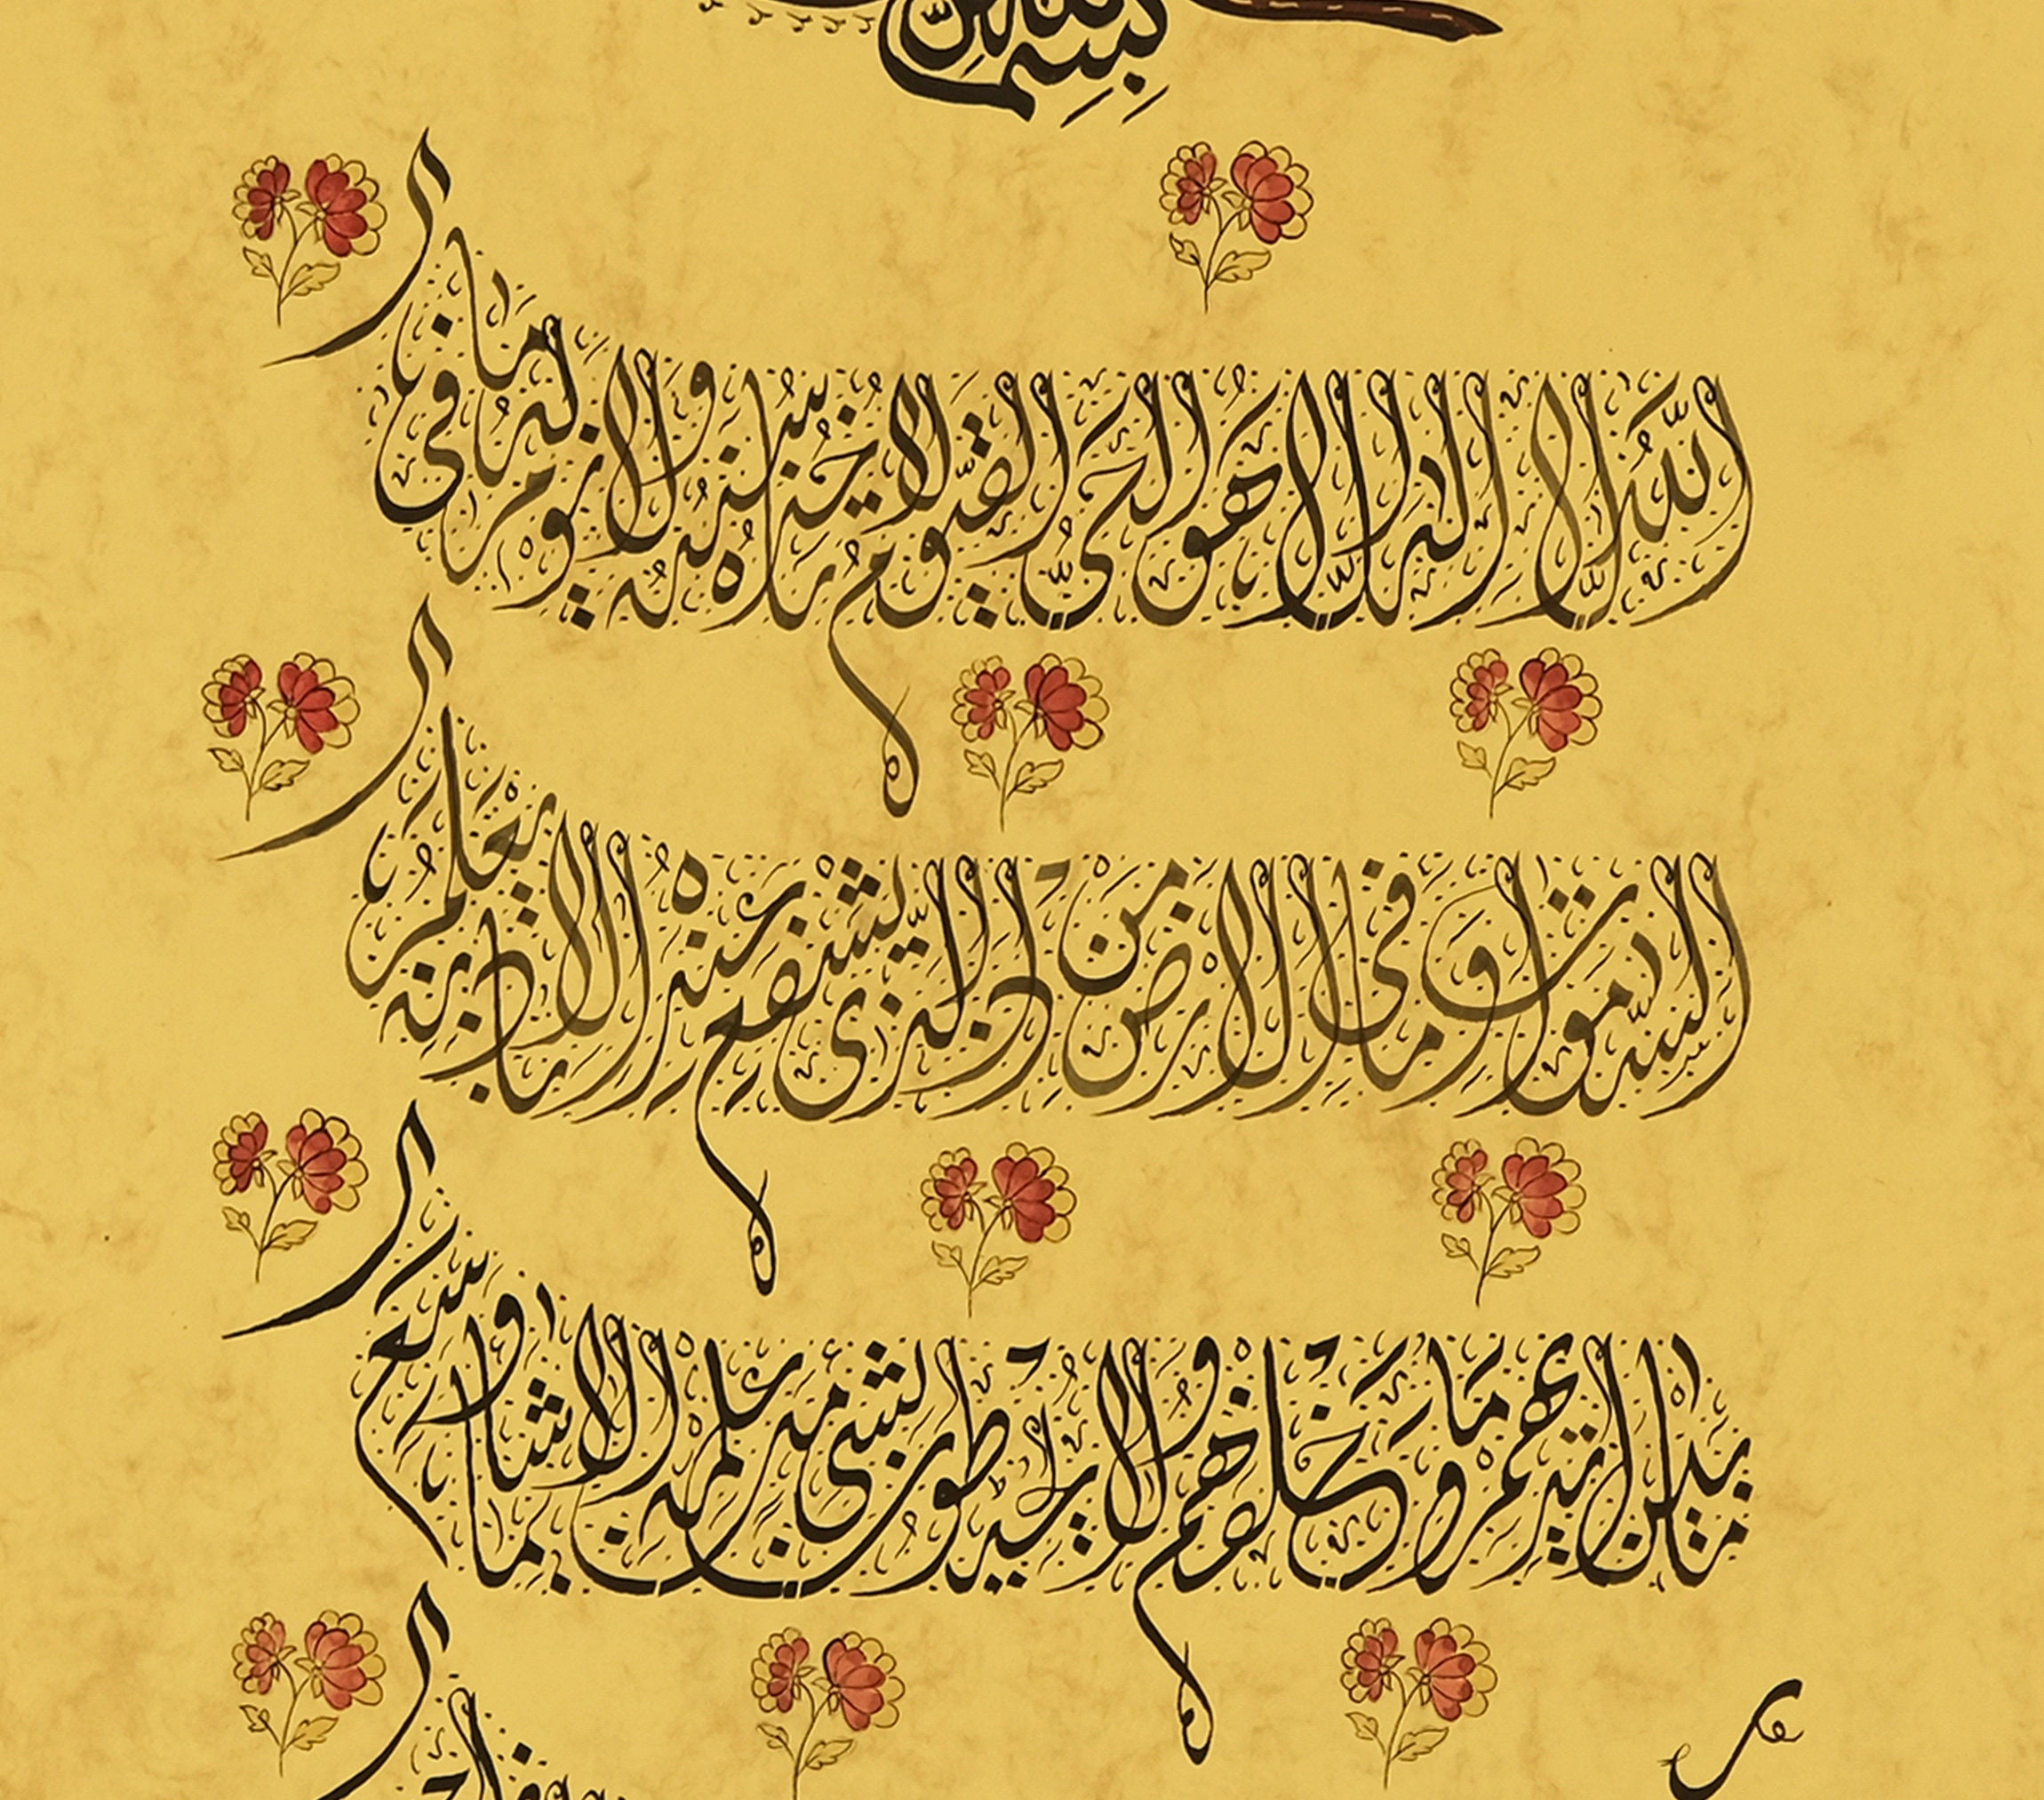 بسم
الله لا إله إلا هو الحي القيوم لا تأخذه سنة ولا نوم له ما في
السموات وما في الأرض من ذا الذي يشفع عنده إلا بإذنه يعلم ما
بين أيديهم وما خلفهم ولا يحيطون بشيء من علمه إلا بما شاء وسع